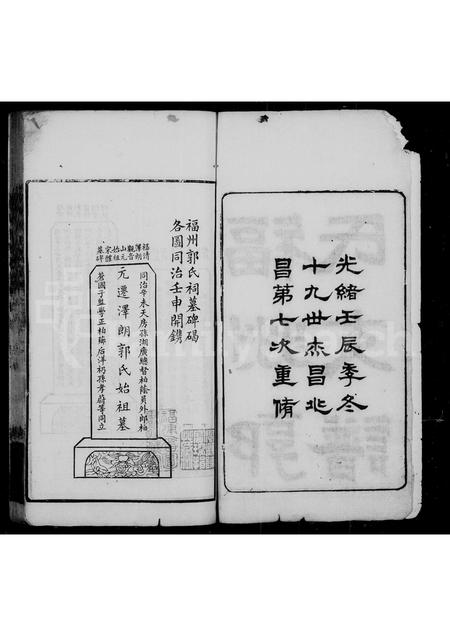 光緒壬辰季冬
十九世杰昌兆
昌第七次重脩
福州郭氏祠墓碑碣
各圖同治壬申開鐫
福清
澤朗
觀音
山元
始祖
宋體
墓碑
同治辛未天房孫湖廣總督柏蔭員外郎柏
元遷澤朗郭氏始祖墓
蒼國子監學正柏薌后洋礽孫孝蔚等同立